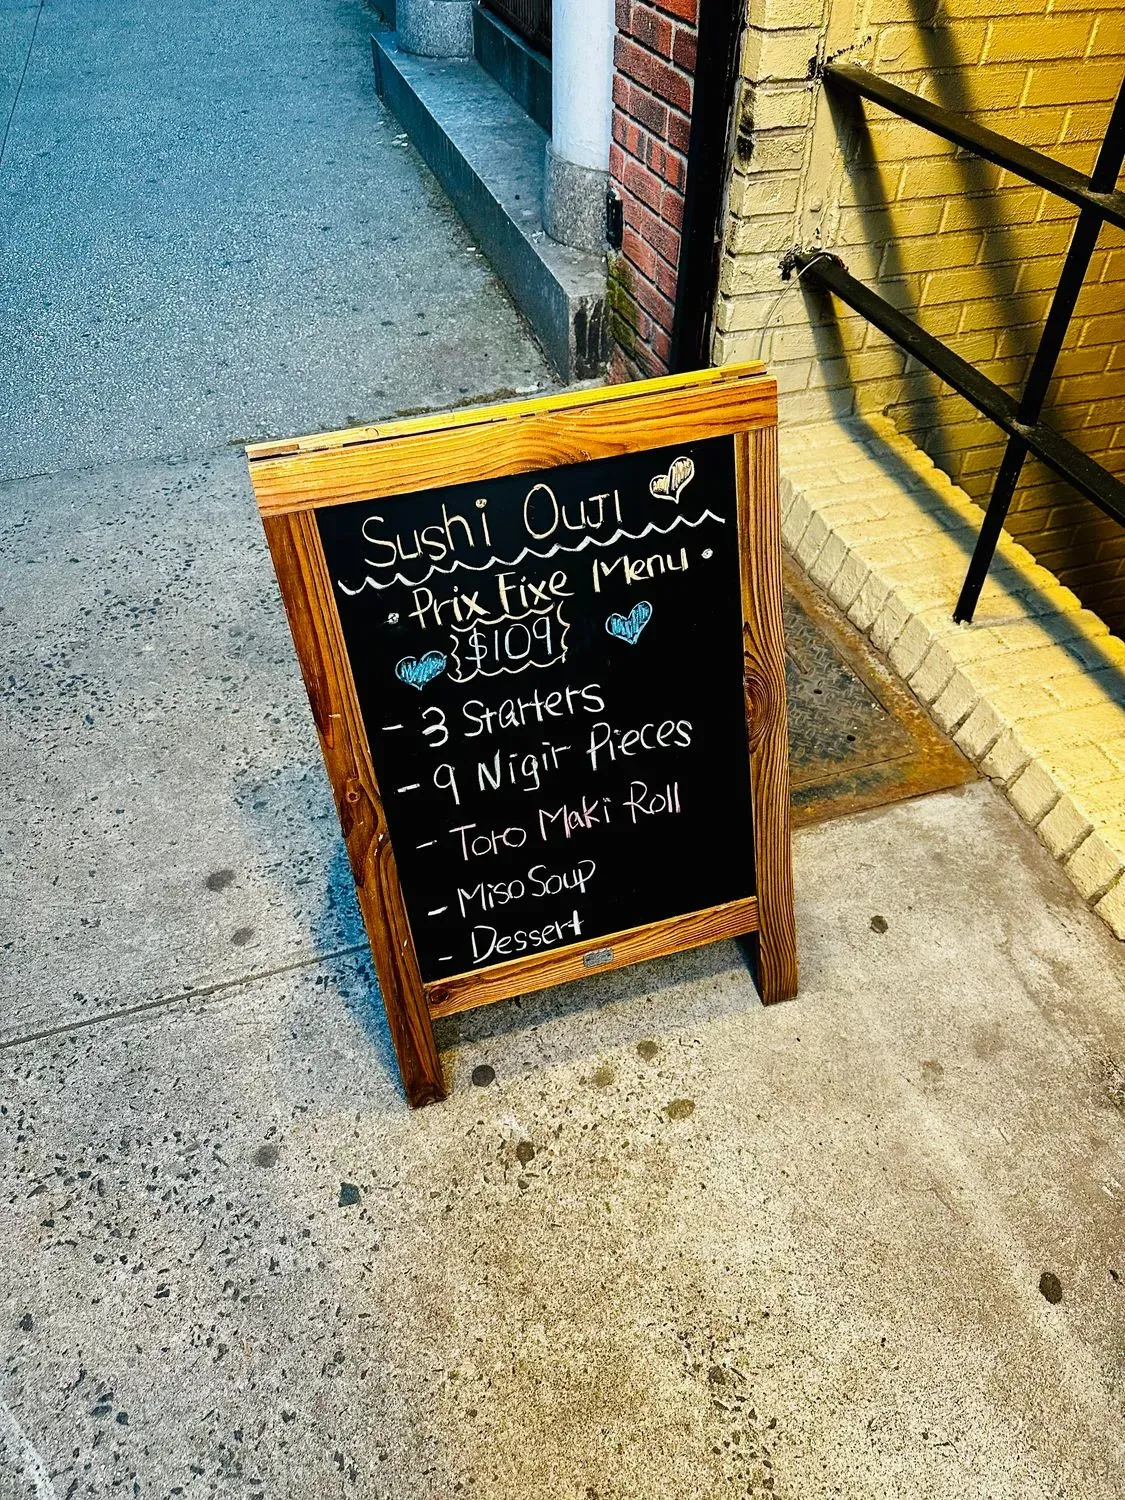 Sushi Ouji
Prix Fixe Menu
$109
- 3 Starters
- 9 Nigir Pieces
- Toro Maki Roll
- Miso Soup
- Dessert